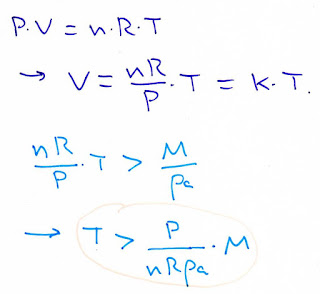 P.V = n.R.T
→ V = nR/P . T = K.T.
nR/P . T > M/Pa
→ T > P/nRPa . M